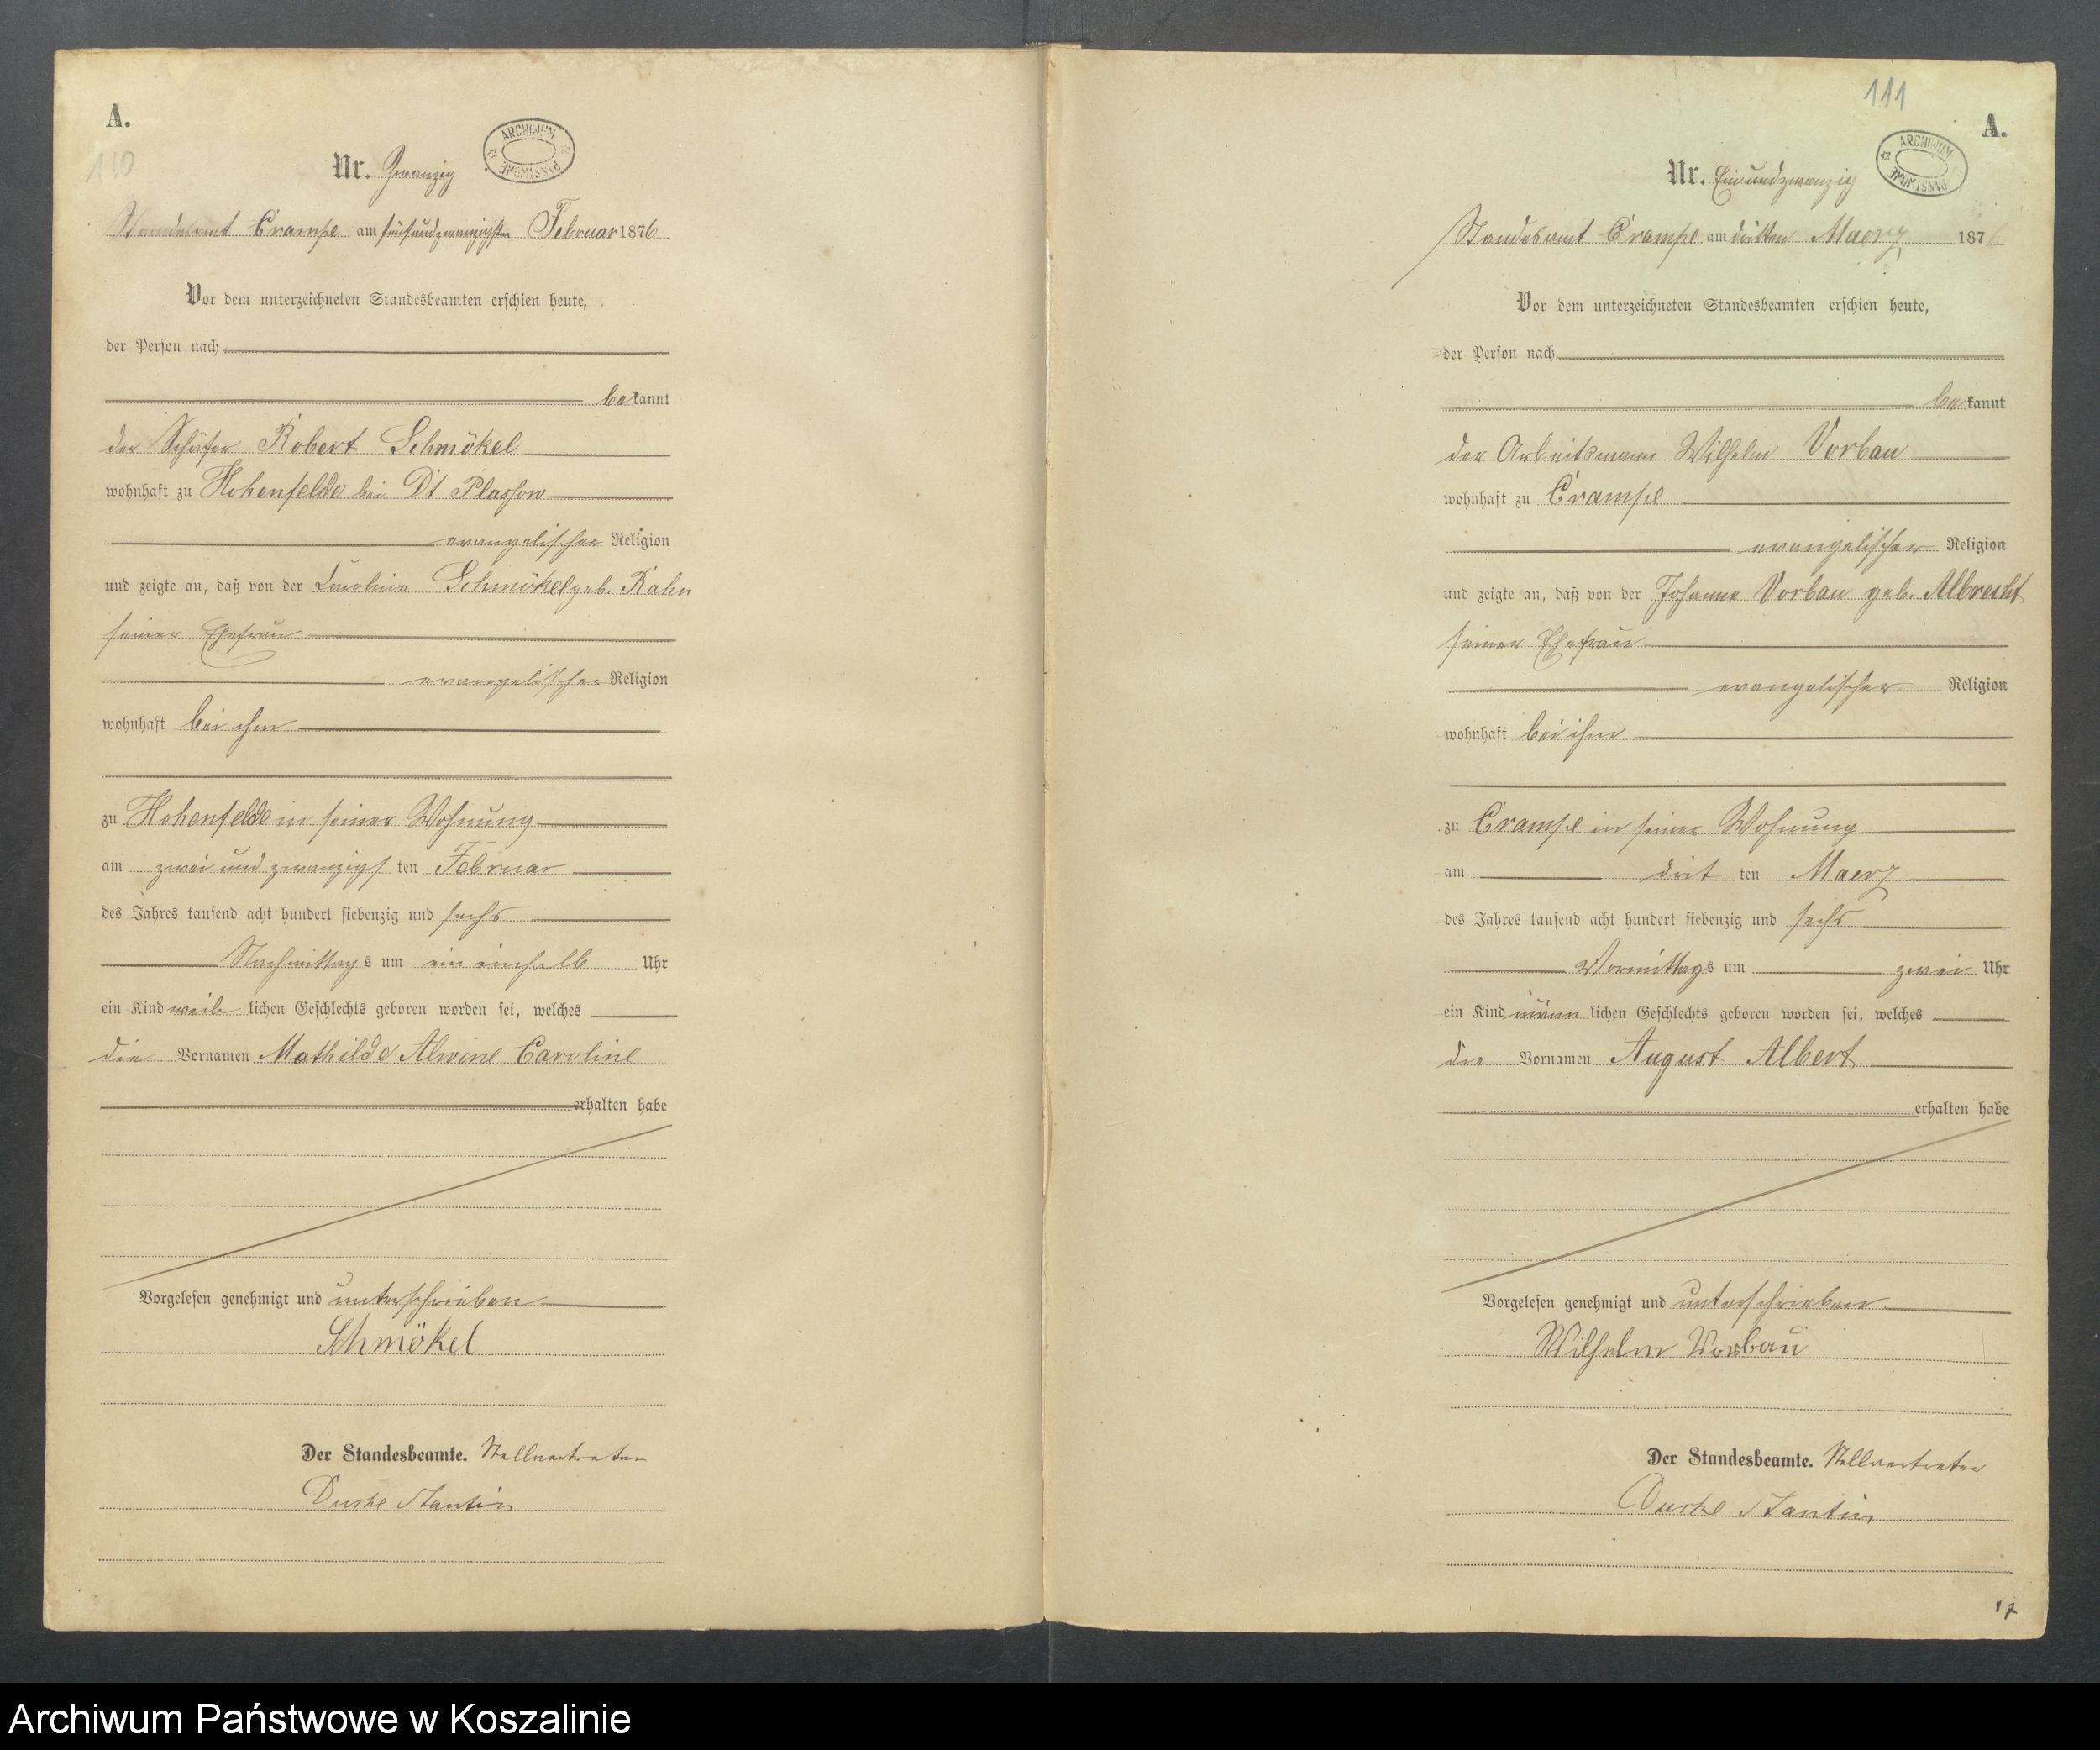 A.
110
Nr. Zwanzig
ARCHIWUM PAŃSTWOWE
Standesamt Crampe am fünfundzwanzigsten Februar 1876
Vor dem unterzeichneten Standesbeamten erschien heute,
der Person nach
bekannt
der Schäfer Robert Schmökel
wohnhaft zu Hohenfelde bei Dt Plassow
evangelischer Religion
und zeigte an, daß von der Caroline Schmökel geb. Rahn
seiner Ehefrau
evangelischer Religion
wohnhaft bei ihm
zu Hohenfelde in seiner Wohnung
am zwei und zwanzigsten Februar
des Jahres tausend acht hundert siebenzig und sechs
Nachmittags um ein einhalb Uhr
ein Kind weiblichen Geschlechts geboren worden sei, welches
die Vornamen Mathilde Alwine Caroline
erhalten habe
Vorgelesen genehmigt und unterschrieben
Schmökel
Der Standesbeamte. Stellvertreter
111
A.
Nr. Einundzwanzig
ARCHIWUM PAŃSTWOWE
Standesamt Crampe am dritten Maerz 1876
Vor dem unterzeichneten Standesbeamten erschien heute,
der Person nach
bekannt
der Arbeitsmann Wilhelm Vorbau
wohnhaft zu Crampe
evangelischer Religion
und zeigte an, daß von der Johanne Vorbau geb. Albrecht
seiner Ehefrau
evangelischer Religion
wohnhaft bei ihm
zu Crampe in seiner Wohnung
am dritten Maerz
des Jahres tausend acht hundert siebenzig und sechs
Vormittags um zwei Uhr
ein Kind männlichen Geschlechts geboren worden sei, welches
die Vornamen August Albert
erhalten habe
Vorgelesen genehmigt und unterschrieben
Wilhelm Vorbau
Der Standesbeamte. Stellvertreter
17
Archiwum Państwowe w Koszalinie